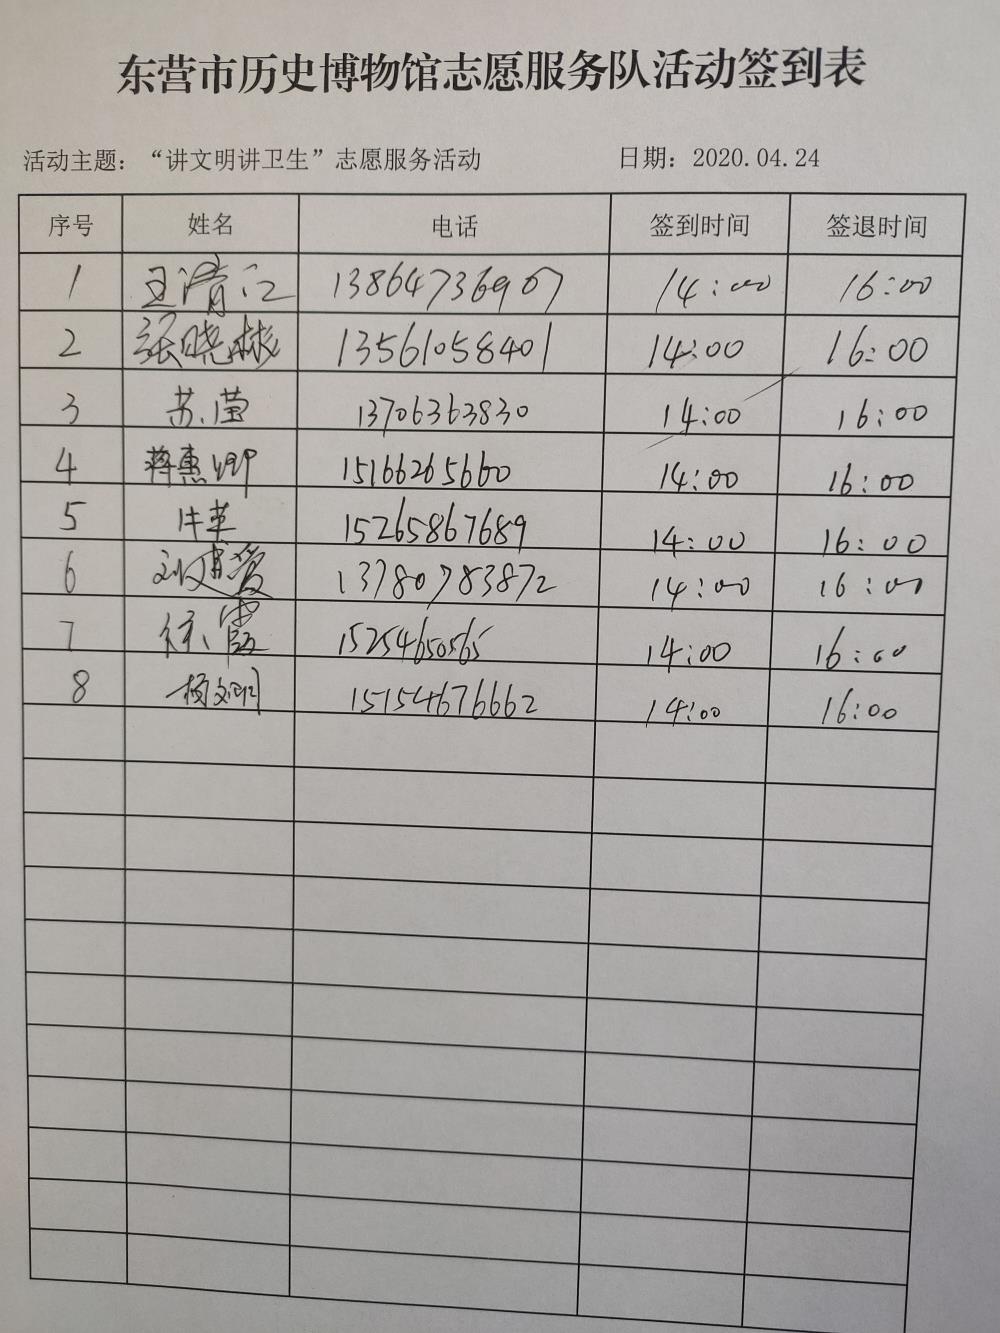 东营市历史博物馆志愿服务队活动签到表
活动主题：“讲文明讲卫生”志愿服务活动 日期：2020.04.24
序号 姓名 电话 签到时间 签退时间
1 王清江 13864736907 14:00 16:00
2 张晓 13561058401 14:00 16:00
3 苏莹 13706363830 14:00 16:00
4 蒋惠 15166265660 14:00 16:00
5 15265867689 14:00 16:00
6 刘 13780783872 14:00 16:00
7 徐霞 15254650565 14:00 16:00
8 杨文明 15154676662 14:00 16:00